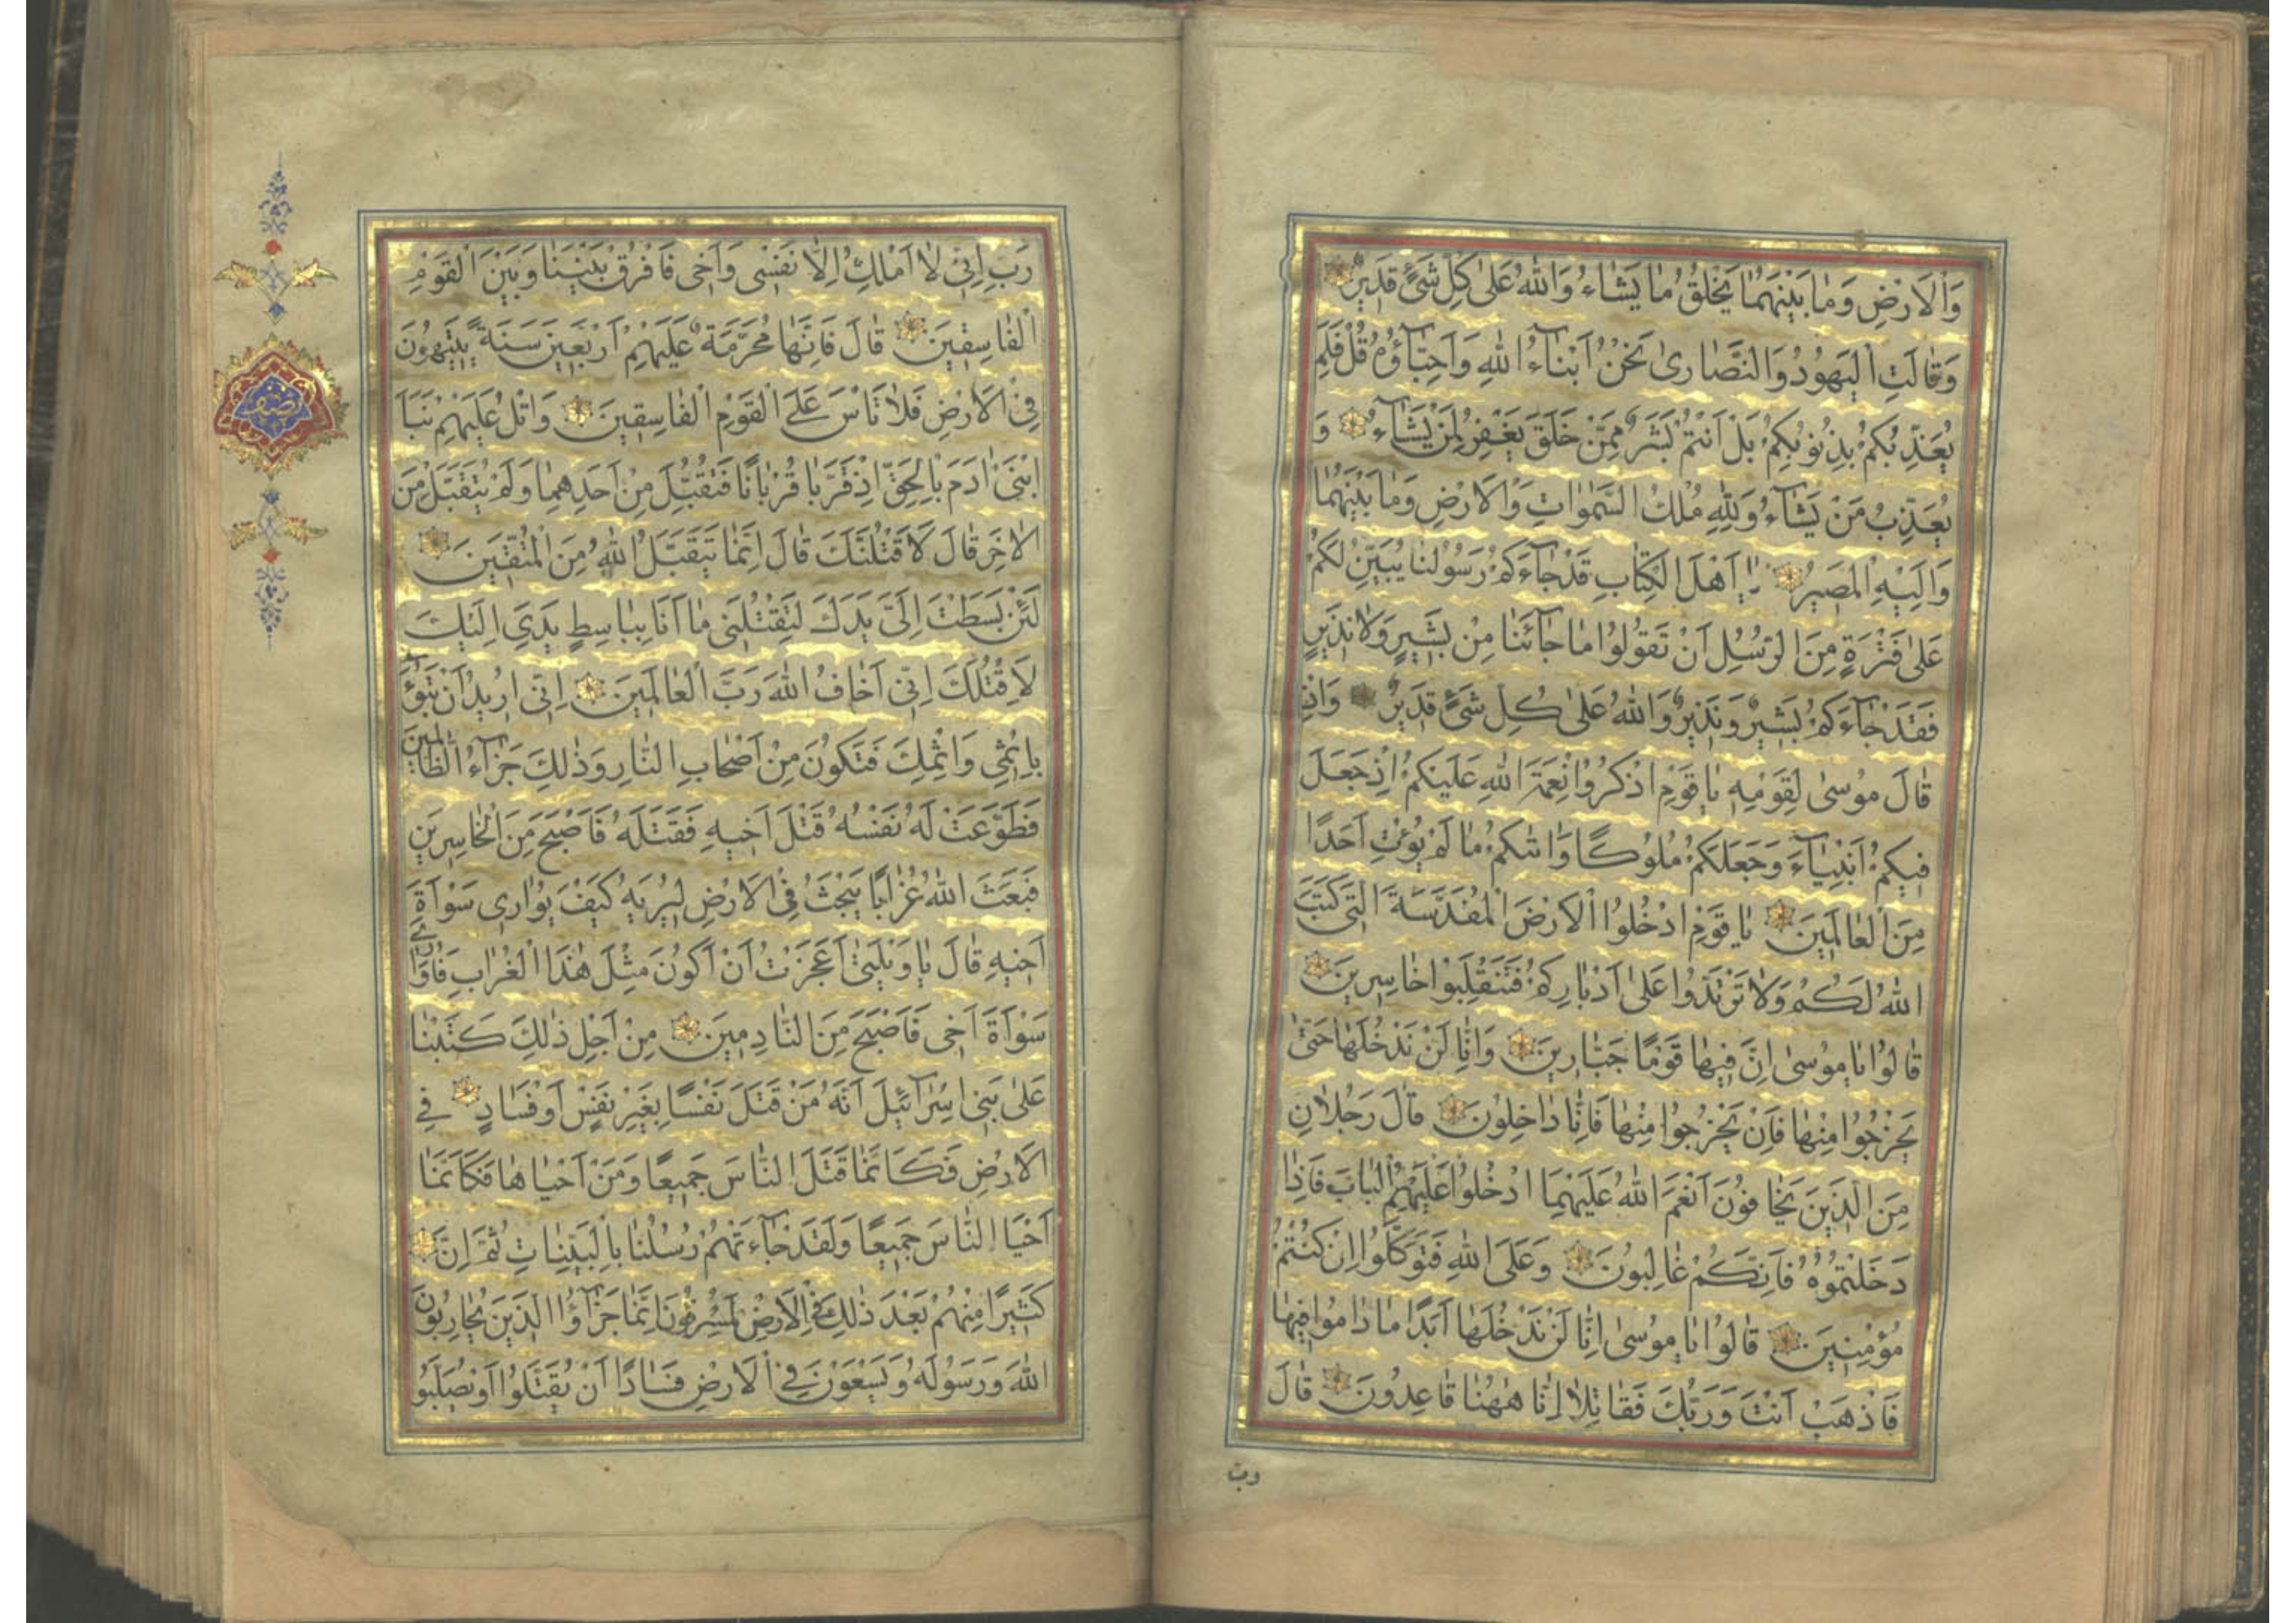 وَالْاَرْضِ وَمٰا بَيْنَهُمٰا يَخْلُقُ مٰا يَشٰاءُ وَاللّٰهُ عَلىٰ كُلِّ شَىْءٍ قَدِيرٌ
وَقٰالَتِ الْيَهُودُ وَالنَّصٰارىٰ نَحْنُ اَبْنٰٓاءُ اللّٰهِ وَاَحِبّٰٓاؤُهُ قُلْ فَلِمَ
يُعَذِّبُكُمْ بِذُنُوبِكُمْ بَلْ اَنْتُمْ بَشَرٌ مِمَّنْ خَلَقَ يَغْفِرُ لِمَنْ يَشٰٓاءُ وَ
يُعَذِّبُ مَنْ يَشٰٓاءُ وَلِلّٰهِ مُلْكُ السَّمٰوٰاتِ وَالْاَرْضِ وَمٰا بَيْنَهُمٰا
وَاِلَيْهِ الْمَصِيرُ يٰٓا اَهْلَ الْكِتٰابِ قَدْ جٰٓاءَكُمْ رَسُولُنٰا يُبَيِّنُ لَكُمْ
عَلىٰ فَتْرَةٍ مِنَ الرُّسُلِ اَنْ تَقُولُوا مٰا جٰٓائَنٰا مِنْ بَشِيرٍ وَلٰا نَذِيرٍ
فَقَدْ جٰٓاءَكُمْ بَشِيرٌ وَنَذِيرٌ وَاللّٰهُ عَلىٰ كُلِّ شَىْءٍ قَدِيرٌ وَاِذْ
قٰالَ مُوسىٰ لِقَوْمِهِ يٰا قَوْمِ اذْكُرُوا نِعْمَةَ اللّٰهِ عَلَيْكُمْ اِذْ جَعَلَ
فِيكُمْ اَنْبِيٰٓاءَ وَجَعَلَكُمْ مُلُوكًا وَاٰتٰىكُمْ مٰا لَمْ يُؤْتِ اَحَدًا
مِنَ الْعٰالَمِينَ يٰا قَوْمِ ادْخُلُوا الْاَرْضَ الْمُقَدَّسَةَ الَّتِى كَتَبَ
اللّٰهُ لَكُمْ وَلٰا تَرْتَدُّوا عَلىٰ اَدْبٰارِكُمْ فَتَنْقَلِبُوا خٰاسِرِينَ
قٰالُوا يٰا مُوسىٰ اِنَّ فِيهٰا قَوْمًا جَبّٰارِينَ وَاِنّٰا لَنْ نَدْخُلَهٰا حَتّىٰ
يَخْرُجُوا مِنْهٰا فَاِنْ يَخْرُجُوا مِنْهٰا فَاِنّٰا دٰاخِلُونَ قٰالَ رَجُلٰانِ
مِنَ الَّذِينَ يَخٰافُونَ اَنْعَمَ اللّٰهُ عَلَيْهِمٰا ادْخُلُوا عَلَيْهِمُ الْبٰابَ فَاِذٰا
دَخَلْتُمُوهُ فَاِنَّكُمْ غٰالِبُونَ وَعَلَى اللّٰهِ فَتَوَكَّلُوا اِنْ كُنْتُمْ
مُؤْمِنِينَ قٰالُوا يٰا مُوسىٰ اِنّٰا لَنْ نَدْخُلَهٰا اَبَدًا مٰا دٰامُوا فِيهٰا
فَاذْهَبْ اَنْتَ وَرَبُّكَ فَقٰاتِلٰا اِنّٰا هٰهُنٰا قٰاعِدُونَ قٰالَ
رب
رَبِّ اِنِّى لٰا اَمْلِكُ اِلّٰا نَفْسِى وَاَخِى فَافْرُقْ بَيْنَنٰا وَبَيْنَ الْقَوْمِ
الْفٰاسِقِينَ قٰالَ فَاِنَّهٰا مُحَرَّمَةٌ عَلَيْهِمْ اَرْبَعِينَ سَنَةً يَتِيهُونَ
فِى الْاَرْضِ فَلٰا تَاْسَ عَلَى الْقَوْمِ الْفٰاسِقِينَ وَاتْلُ عَلَيْهِمْ نَبَاَ
ابْنَىْ اٰدَمَ بِالْحَقِّ اِذْ قَرَّبٰا قُرْبٰانًا فَتُقُبِّلَ مِنْ اَحَدِهِمٰا وَلَمْ يُتَقَبَّلْ مِنَ
الْاٰخَرِ قٰالَ لَاَقْتُلَنَّكَ قٰالَ اِنَّمٰا يَتَقَبَّلُ اللّٰهُ مِنَ الْمُتَّقِينَ
لَئِنْ بَسَطْتَ اِلَىَّ يَدَكَ لِتَقْتُلَنِى مٰا اَنَا بِبٰاسِطٍ يَدِىَ اِلَيْكَ
لِاَقْتُلَكَ اِنِّى اَخٰافُ اللّٰهَ رَبَّ الْعٰالَمِينَ اِنِّى اُرِيدُ اَنْ تَبُوءَ
بِاِثْمِى وَاِثْمِكَ فَتَكُونَ مِنْ اَصْحٰابِ النّٰارِ وَذٰلِكَ جَزٰٓاءُ الظّٰالِمِينَ
فَطَوَّعَتْ لَهُ نَفْسُهُ قَتْلَ اَخِيهِ فَقَتَلَهُ فَاَصْبَحَ مِنَ الْخٰاسِرِينَ
فَبَعَثَ اللّٰهُ غُرٰابًا يَبْحَثُ فِى الْاَرْضِ لِيُرِيَهُ كَيْفَ يُوٰارِى سَوْاَةَ
اَخِيهِ قٰالَ يٰا وَيْلَتىٰ اَعَجَزْتُ اَنْ اَكُونَ مِثْلَ هٰذَا الْغُرٰابِ فَاُوٰارِىَ
سَوْاَةَ اَخِى فَاَصْبَحَ مِنَ النّٰادِمِينَ مِنْ اَجْلِ ذٰلِكَ كَتَبْنٰا
عَلىٰ بَنِى اِسْرٰٓائِلَ اَنَّهُ مَنْ قَتَلَ نَفْسًا بِغَيْرِ نَفْسٍ اَوْ فَسٰادٍ فِى
الْاَرْضِ فَكَاَنَّمٰا قَتَلَ النّٰاسَ جَمِيعًا وَمَنْ اَحْيٰاهٰا فَكَاَنَّمٰا
اَحْيَا النّٰاسَ جَمِيعًا وَلَقَدْ جٰٓاءَتْهُمْ رُسُلُنٰا بِالْبَيِّنٰاتِ ثُمَّ اِنَّ
كَثِيرًا مِنْهُمْ بَعْدَ ذٰلِكَ فِى الْاَرْضِ لَمُسْرِفُونَ اِنَّمٰا جَزٰٓاؤُا الَّذِينَ يُحٰارِبُونَ
اللّٰهَ وَرَسُولَهُ وَيَسْعَوْنَ فِى الْاَرْضِ فَسٰادًا اَنْ يُقَتَّلُوا اَوْ يُصَلَّبُو